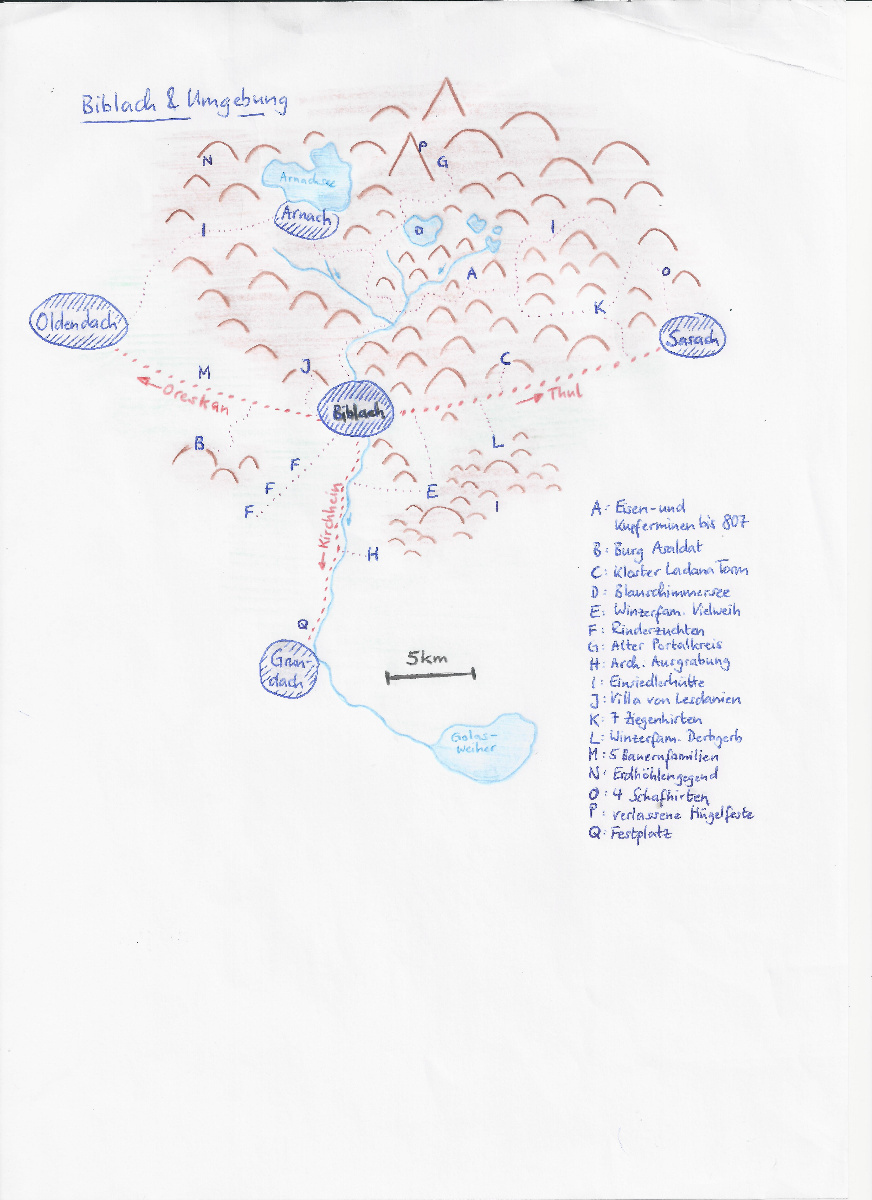 Biblach & Umgebung
N
P
G
Arnachsee
Arnach
I
D
I
A
O
K
Oldendach
Sasach
M
J
C
Oreskan
Biblach
Thul
B
F
L
F
E
I
F
Kirchhein
H
Q
Grun-
dach
5km
Golas-
weiher
A: Eisen- und
Kupferminen bis 807
B: Burg Asaldat
C: Kloster Ladana Torm
D: Blauschimmersee
E: Winzerfam. Vielweih
F: Rinderzuchten
G: Alter Portalkreis
H: Arch. Ausgrabung
I: Einsiedlerhütte
J: Villa von Lesdanien
K: 7 Ziegenhirten
L: Winzerfam. Derbgerb
M: 5 Bauernfamilien
N: Erdhöhlengegend
O: 4 Schafhirten
P: verlassene Hügelfeste
Q: Festplatz